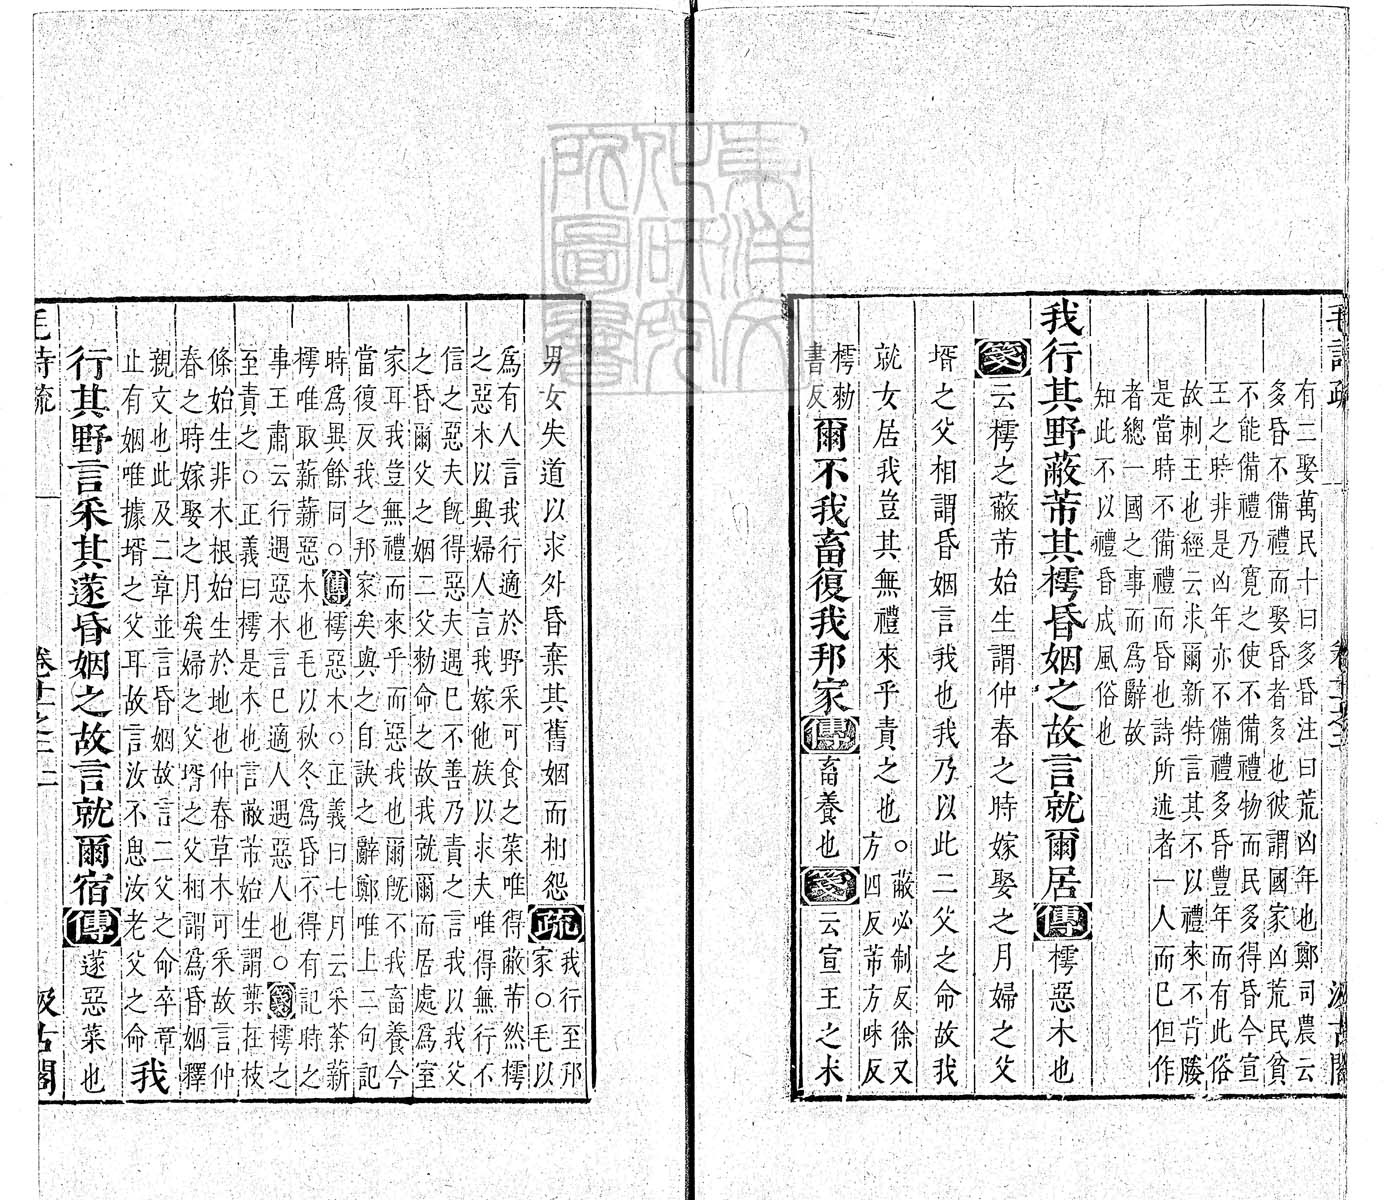 毛詩疏 卷十一之二 汲古閣
有二娶萬民十曰多昏注曰荒凶年也鄭司農云
多昏不備禮而娶昏者多也彼謂國家凶荒民貧
不能備禮乃寬之使不備禮物而民多得昏今宣
王之時非是凶年亦不備禮多昏豐年而有此俗
故刺王也經云求爾新特言其不以禮來不肯勝
是當時不備禮而昏也詩所述者一人而已但作
者總一國之事而爲辭故
知此不以禮昏成風俗也
我行其野蔽芾其樗昏姻之故言就爾居傳樗惡木也
箋云樗之蔽芾始生謂仲春之時嫁娶之月婦之父
壻之父相謂昏姻言我也我乃以此二父之命故我
就女居我豈其無禮來乎責之也○蔽必制反徐又方四反芾方味反
樗勑書反爾不我畜復我邦家傳畜養也箋云宣王之末
男女失道以求外昏棄其舊姻而相怨疏我行至邦家○毛以
爲有人言我行適於野采可食之菜唯得蔽芾然樗
之惡木以興婦人言我嫁他族以求夫唯得無行不
信之惡夫既得惡夫遇已不善乃責之言我以我父
之昏爾父之姻二父勑命之故我就爾而居處爲室
家耳我豈無禮而來乎而惡我也爾既不我畜養今
當復反我之邦家矣與之自訣之辭鄭唯上二句記
時爲異餘同○傳樗惡木○正義曰七月云采荼薪
樗唯取薪薪惡木也毛以秋冬爲昏不得有記時之
事王肅云行遇惡木言已適人遇惡人也○箋樗之
至責之○正義曰樗是木也言蔽芾始生謂葉在枝
條始生非木根始生於地也仲春草木可采故言仲
春之時嫁娶之月矣婦之父壻之父相謂爲昏姻釋
親文也此及二章並言昏姻故言二父之命卒章
止有姻唯據壻之父耳故言汝不思汝老父之命我
行其野言采其蓫昏姻之故言就爾宿傳蓫惡菜也
毛詩疏 卷十一之二 二 汲古閣
東洋文化研究所圖書